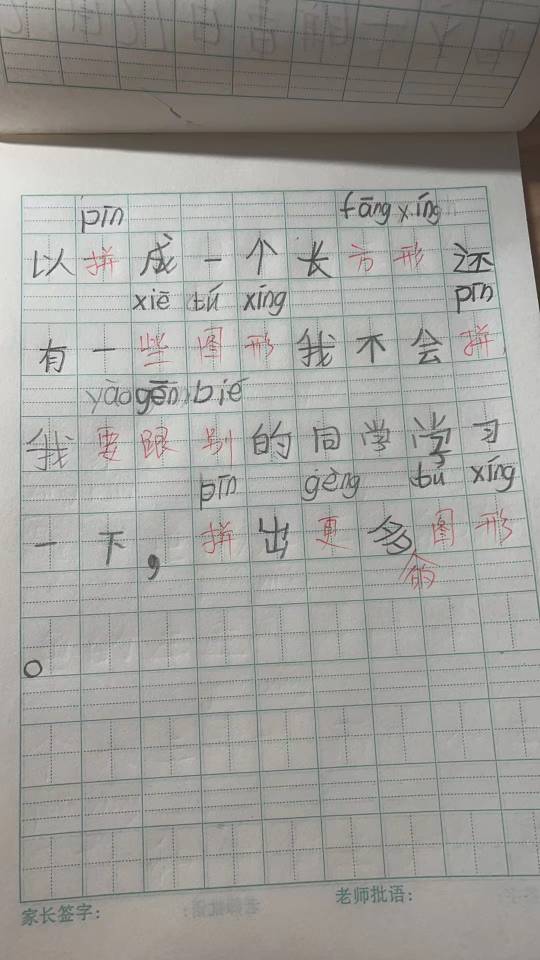 pīn fāng xíng
以拼成一个长方形还
xiē tú xíng pīn
有一些图形我不会拼,
yào gēn bié
我要跟别的同学学习
pīn gèng tú xíng
一下，拼出更多图形
的
。
家长签字：
老师批语：